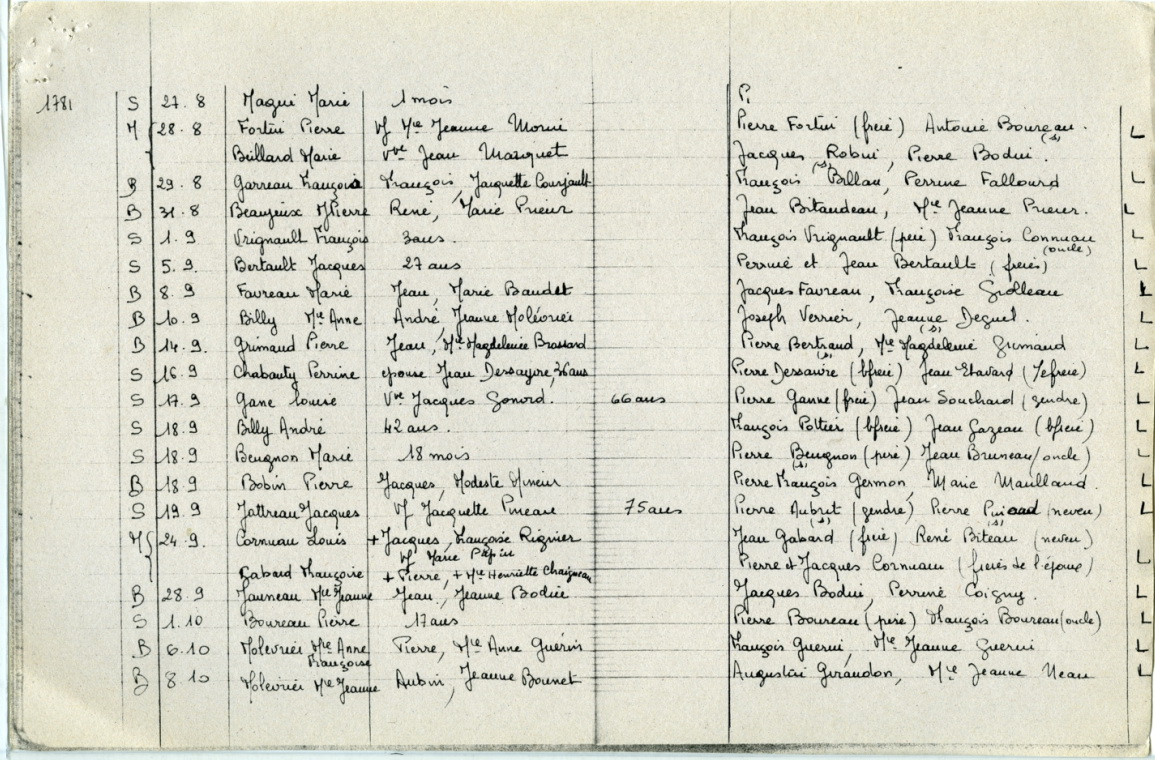 1781 S 27.8 Magui Marie 1 mois P.
M 28.8 Fortin Pierre Vf Mie Jeanne Morin Pierre Fortin (frère) Antoine Boureau. L
(s)
Billard Marie Vve Jean Marquet Jacques Robin, Pierre Bodin.
(s)
B 29.8 Garreau François François, Jacquette Courjault François Billau, Perrine Fallourd L
B 31.8 Beaujeux Pierre René, Marie Prieur Jean Bitaudeau, Mie Jeanne Prieur. L
S 1.9 Vrignault François 3 ans. François Vrignault (père) François Connuau L
(oncle)
S 5.9. Bertault Jacques 27 ans Perrine et Jean Bertault (frères) L
B 8.9 Favreau Marie Jean, Marie Baudet Jacques Favreau, Françoise Grolleau L
B 10.9 Billy Mie Anne André, Jeanne Molévrier Joseph Verrier, Jeanne Deguel. L
(s)
B 14.9. Grimaud Pierre Jean, Mie Magdeleine Brossard Pierre Bertrand, Mie Magdeleine Grimaud L
(s)
S 16.9 Chabauty Perrine épouse Jean Dessayvre, 36 ans Pierre Dessaivre (bfrère) Jean Etavard (frère) L
S 17.9 Gane Louise Vve Jacques Gonord. 66 ans Pierre Ganne (frère) Jean Souchard (gendre) L
S 18.9 Billy André 42 ans. François Pottier (bfrère) Jean Gazeau (bfrère) L
S 18.9 Beugnon Marie 18 mois Pierre Beugnon (père) Jean Bruneau (oncle) L
(s)
B 18.9 Bobin Pierre Jacques, Modeste Mineur Pierre François Germon, Marie Maulland. L
S 19.9 Jattreau Jacques Vf Jacquette Pineau 75 ans Pierre Aubrit (gendre) Pierre (neveu) L
(s) (s)
M 24.9. Cornuau Louis + Jacques, Françoise Régnier Jean Gabard (frère) René Biteau (neveu)
Vf Marie Pépin
Gabard Françoise + Pierre, + Mie Henriette Chaigneau Pierre et Jacques Cornuau (frères de l'épouse) L
B 28.9 Jauneau Mie Jeanne Jean, Jeanne Bodin Jacques Bodin, Perrine Coigny. L
S 1.10 Boureau Pierre 17 ans Pierre Boureau (père) François Boureau (oncle) L
B 6.10 Molevrier Mie Anne Pierre, Mie Anne Guérin François Guerin, Mie Jeanne Guerin L
Françoise
B 8.10 Molevrier Mie Jeanne Aubin, Jeanne Bounet Augustin Giraudon, Mie Jeanne Neau L